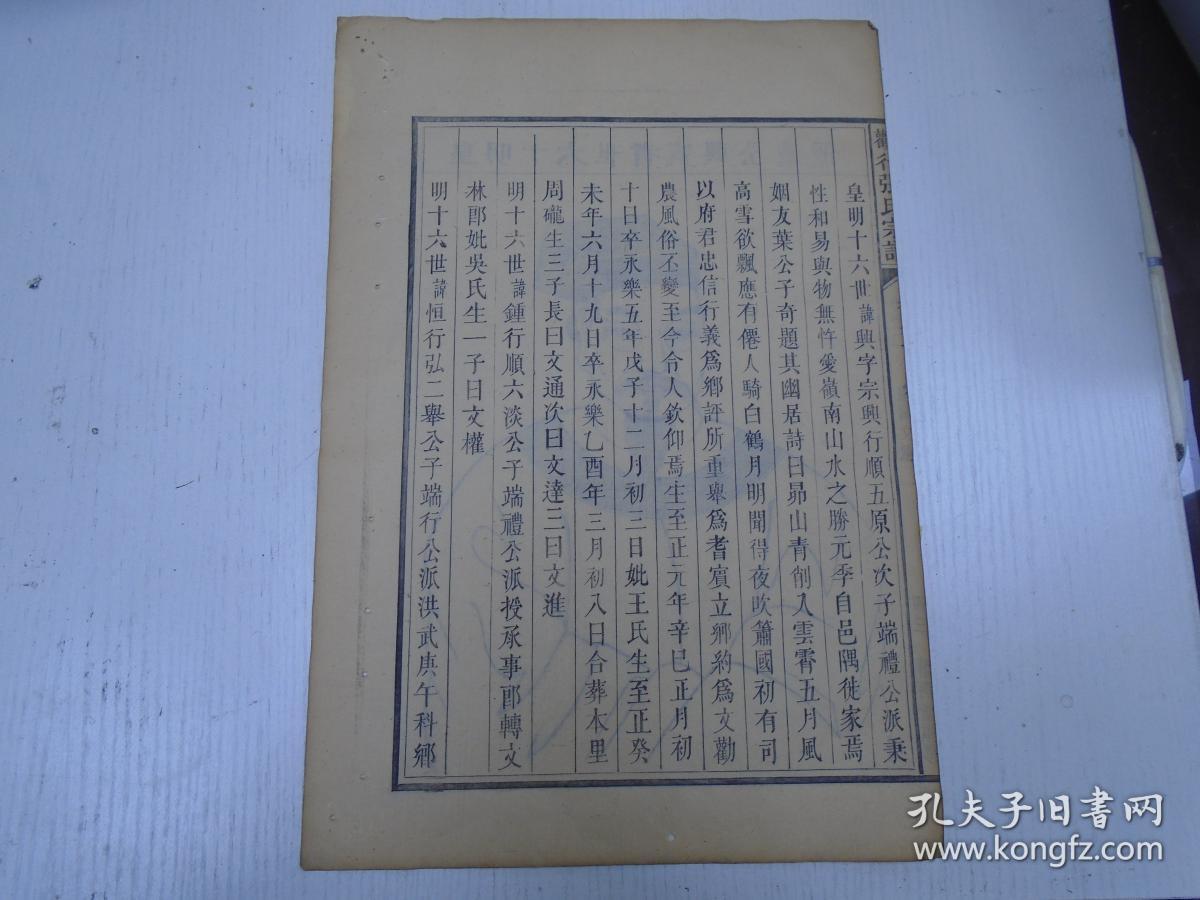 皇明十六世諱興字宗興行順五原公次子端禮公派秉
性和易與物無忤愛嶺南山水之勝元季自邑隅徙家焉
姻友葉公子奇題其幽居詩曰昴山青削入雲霄五月風
高雪欲飄應有僊人騎白鶴月明聞得夜吹簫國初有司
以府君忠信行義爲鄉評所重舉爲耆賓立鄉約爲文勸
農風俗丕變至今令人欽仰焉生至正元年辛巳正月初
十日卒永樂五年戊子十二月初三日妣王氏生至正癸
未年六月十九日卒永樂乙酉年三月初八日合葬本里
周礲生三子長曰文通次曰文達三曰文進
明十六世諱鍾行順六淡公子端禮公派授承事郎轉文
林郎妣吳氏生一子曰文權
明十六世諱恒行弘二舉公子端行公派洪武庚午科鄉
張氏宗譜
孔夫子旧书网
www.kongfz.com